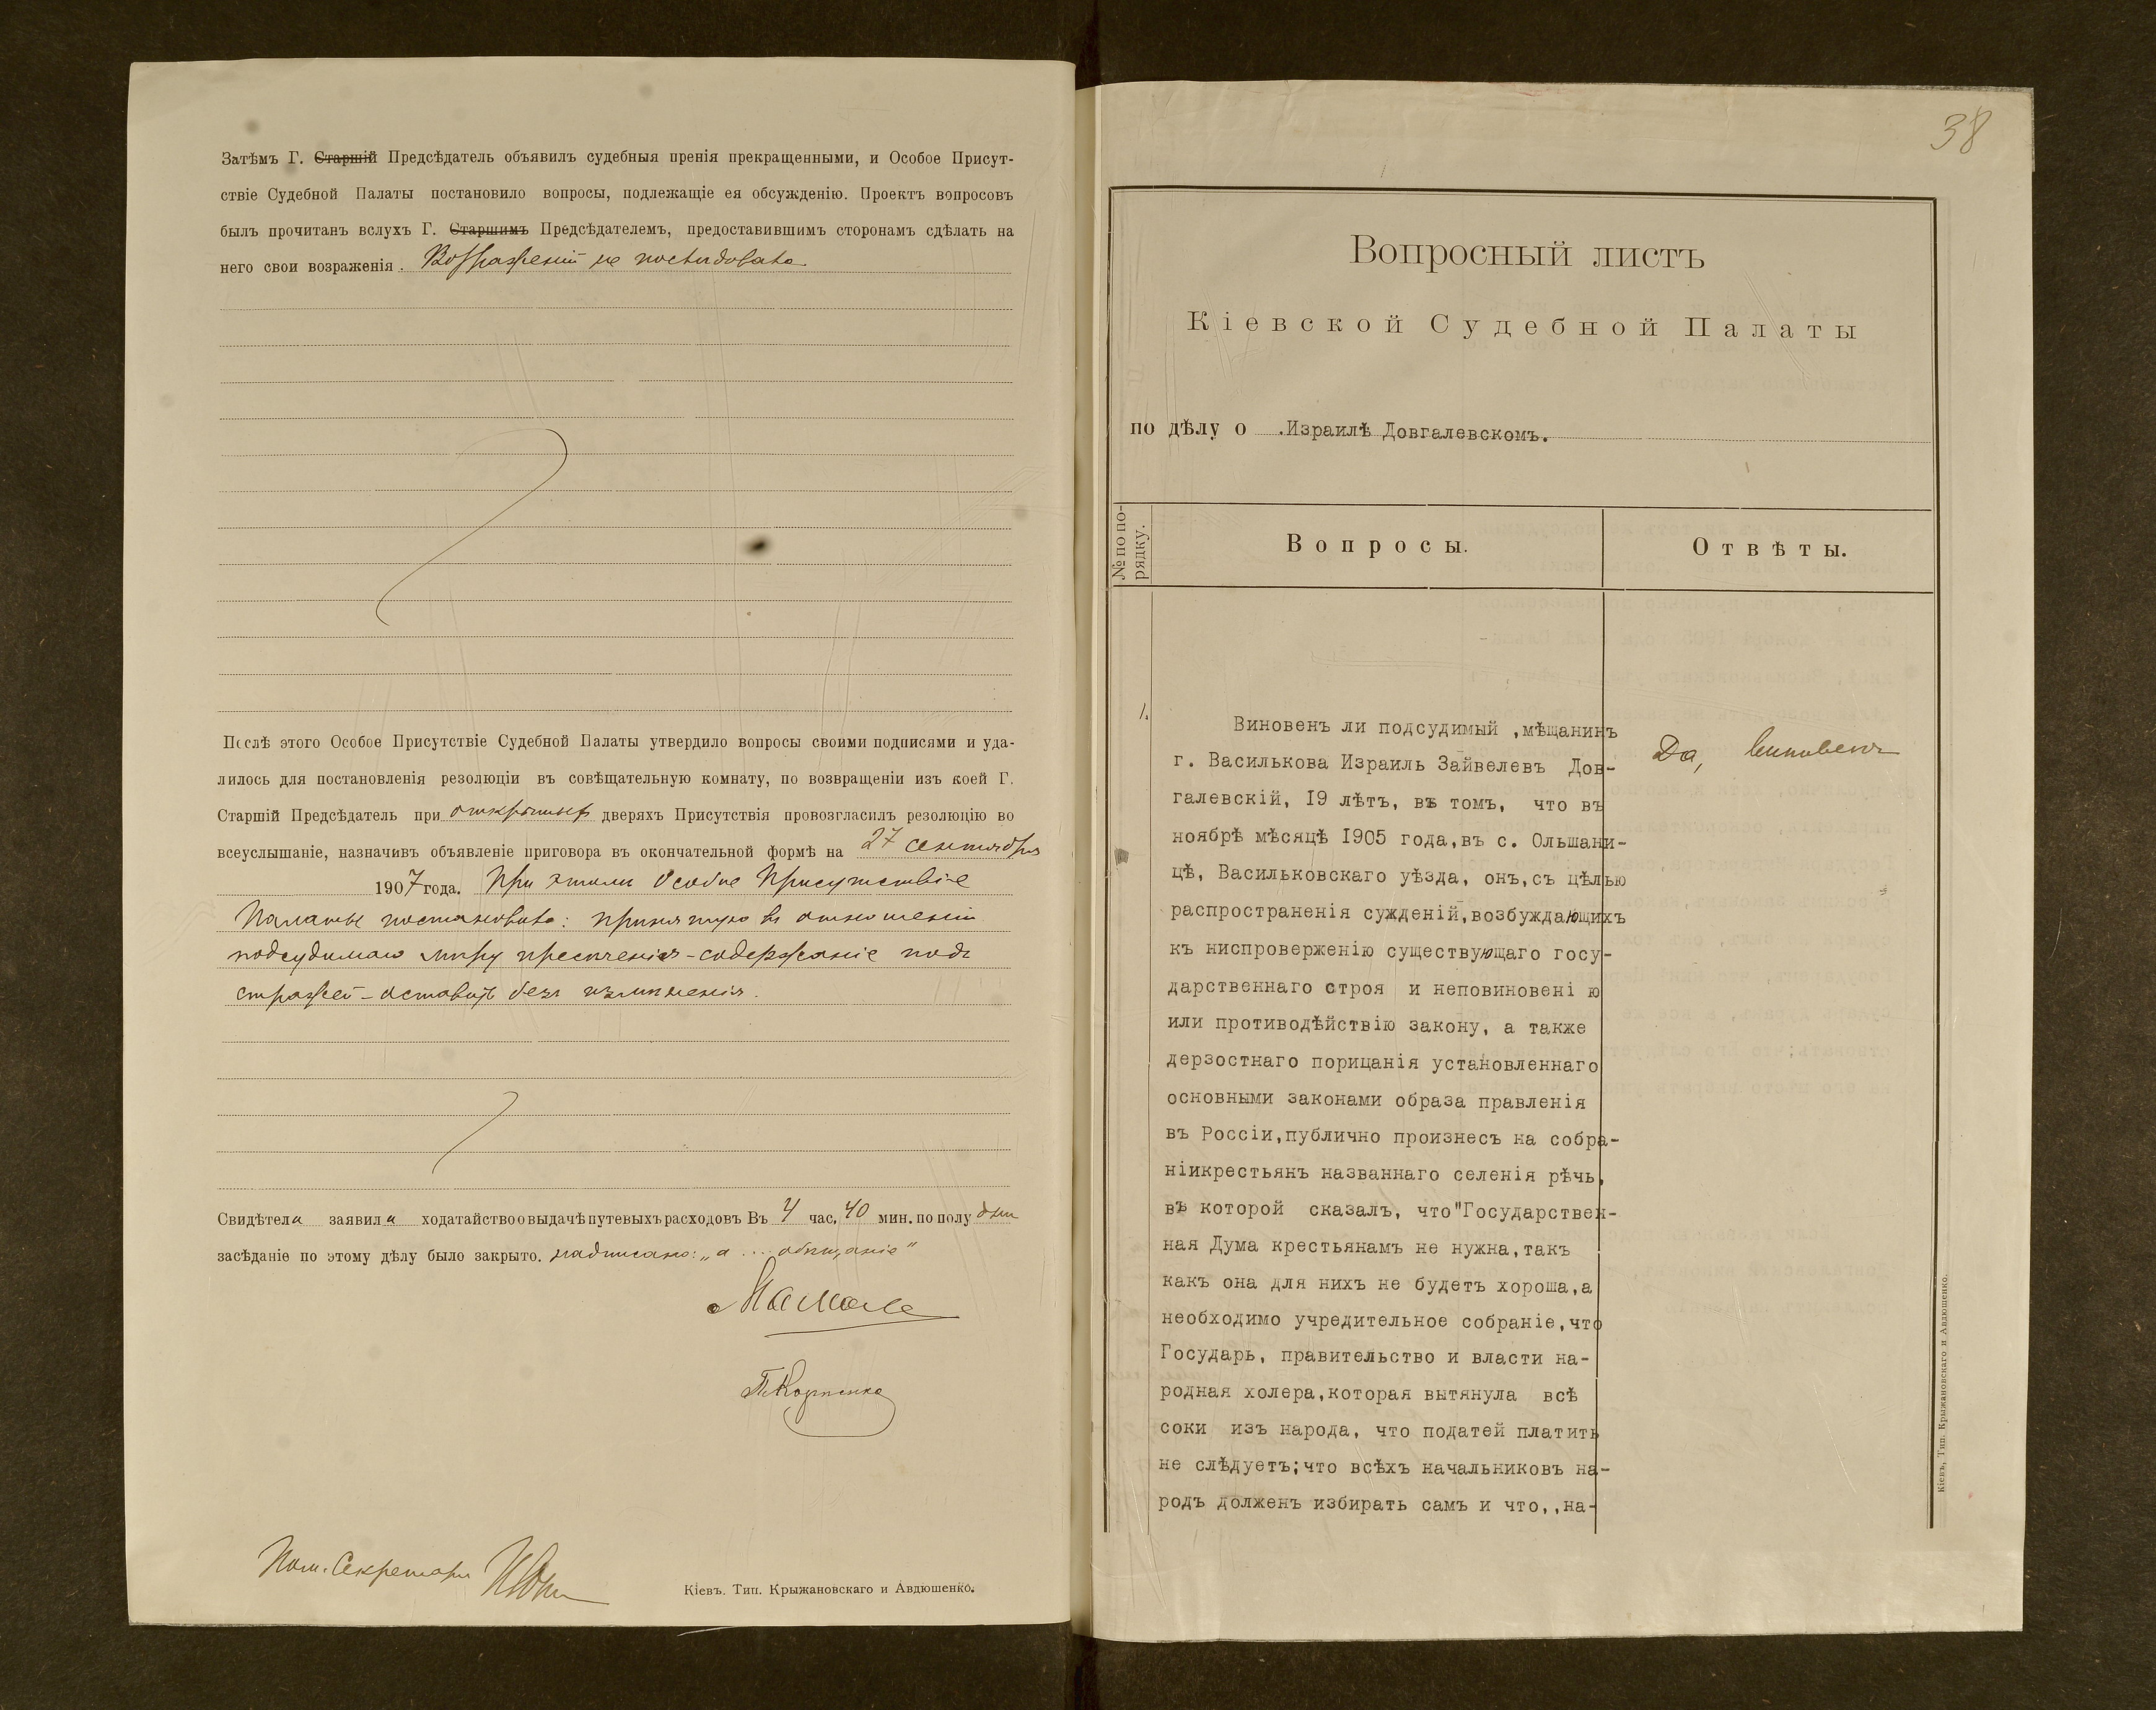 Затѣмъ Г. Старшій Предсѣдатель объявилъ судебныя пренія прекращенными, и Особое Присут-
ствіе Судебной Палаты постановило вопросы, подлежащіе ея обсужденію. Проектъ вопросовъ
былъ прочитанъ вслухъ Г. Старшимъ Предсѣдателемъ, предоставившимъ сторонамъ сдѣлать на
него свои возраженія. Возраженій не послѣдовало
Послѣ этого Особое Присутствіе Судебной Палаты утвердило вопросы своими подписями и уда-
лилось для постановленія резолюціи въ совѣщательную комнату, по возвращеніи изъ коей Г.
Старшій Предсѣдатель при открытыхъ дверяхъ Присутствія провозгласилъ резолюцію во
всеуслышаніе, назначивъ объявленіе приговора въ окончательной формѣ на 27 сентября
1907 года. При этомъ Особое Присутствіе
Палаты постановило: принятую въ отношеніи
подсудимаго мѣру пресѣченія - содержаніе подъ
стражей - оставить безъ измѣненія.
Свидѣтела заявила ходатайство о выдачѣ путевыхъ расходовъ Въ 4 час. 40 мин. по полу дни
засѣданіе по этому дѣлу было закрыто. надписано: „а ... обѣщаніе"
Пом. Секретаря
Кіевъ. Тип. Крыжановскаго и Авдюшенко.
38
Вопросный листъ
Кіевской Судебной Палаты
по дѣлу о .Израилѣ Довгалевскомъ.
№ по по-
рядку.
Вопросы.
Отвѣты.
1.
Виновенъ ли подсудимый ,мѣщанинъ
г. Василькова Израиль Зайвелевъ Дов-
галевскій, 19 лѣтъ, въ томъ, что въ
ноябрѣ мѣсяцѣ 1905 года,въ с. Ольшани-
цѣ, Васильковскаго уѣзда, онъ,съ цѣлью
распространенія сужденій,возбуждающихъ
къ ниспроверженію существующаго госу-
дарственнаго строя и неповиновені ю
или противодѣйствію закону, а также
дерзостнаго порицанія установленнаго
основными законами образа правленія
въ Россіи,публично произнесъ на собра-
ніикрестьянъ названнаго селенія рѣчь,
въ которой сказалъ, что"Государствен-
ная Дума крестьянамъ не нужна,такъ
какъ она для нихъ не будетъ хороша,а
необходимо учредительное собраніе,что
Государь, правительство и власти на-
родная холера,которая вытянула всѣ
соки изъ народа, что податей платить
не слѣдуетъ;что всѣхъ начальниковъ на-
родъ долженъ избирать самъ и что,,на-
Да, виновенъ
Кіевъ, Тип. Крыжановскаго и Авдюшенко.